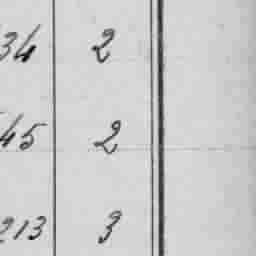 34 2
45 2
213 3